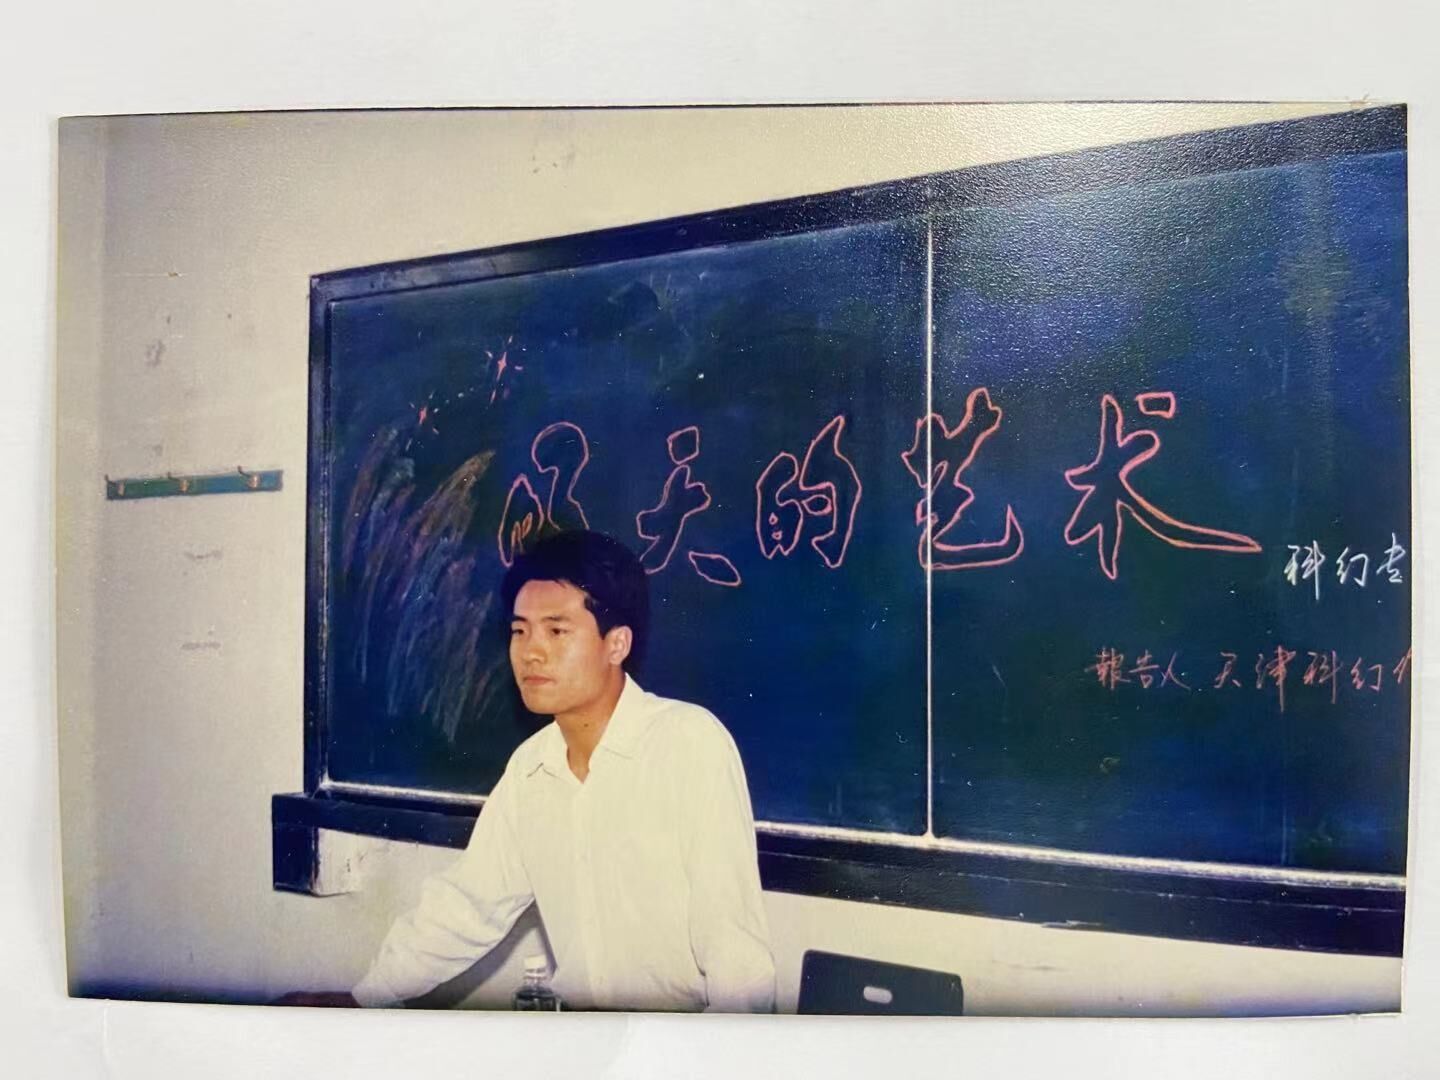 明天的艺术
科幻专
報告人 天津科幻